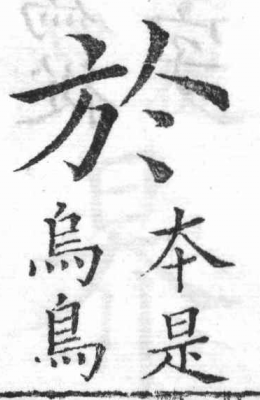 於
本是
烏鳥